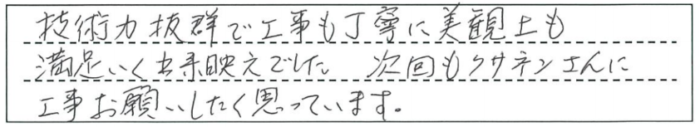 技術力抜群で工事も丁寧に美観上も
満足いく出来映えでした。次回もクサネンさんに
工事お願いしたく思っています。